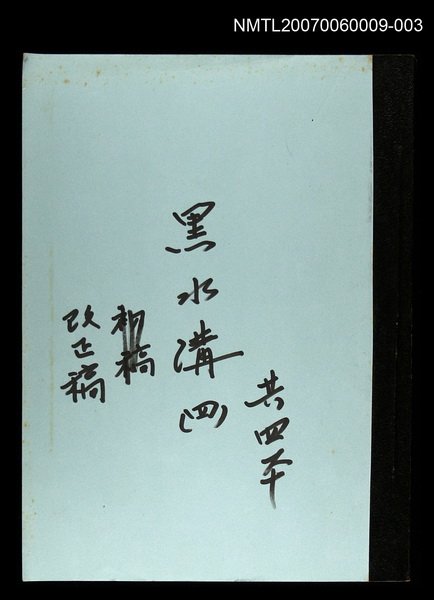 NMTL20070060009-003
共四本
黑水溝(四)
初稿
改正稿